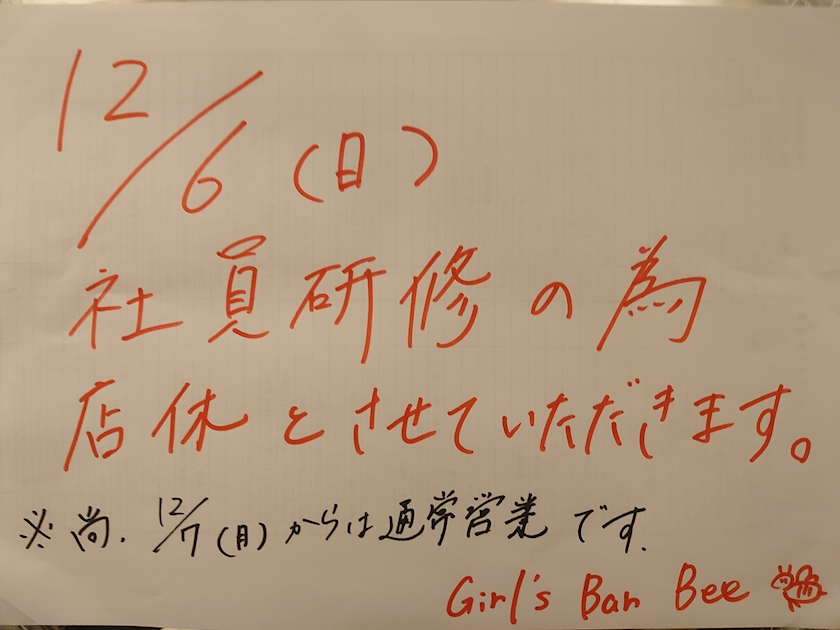 12/6(日)
社員研修の為
店休とさせていただきます。
※尚、12/7(月)からは通常営業です.
Girl's Bar Bee